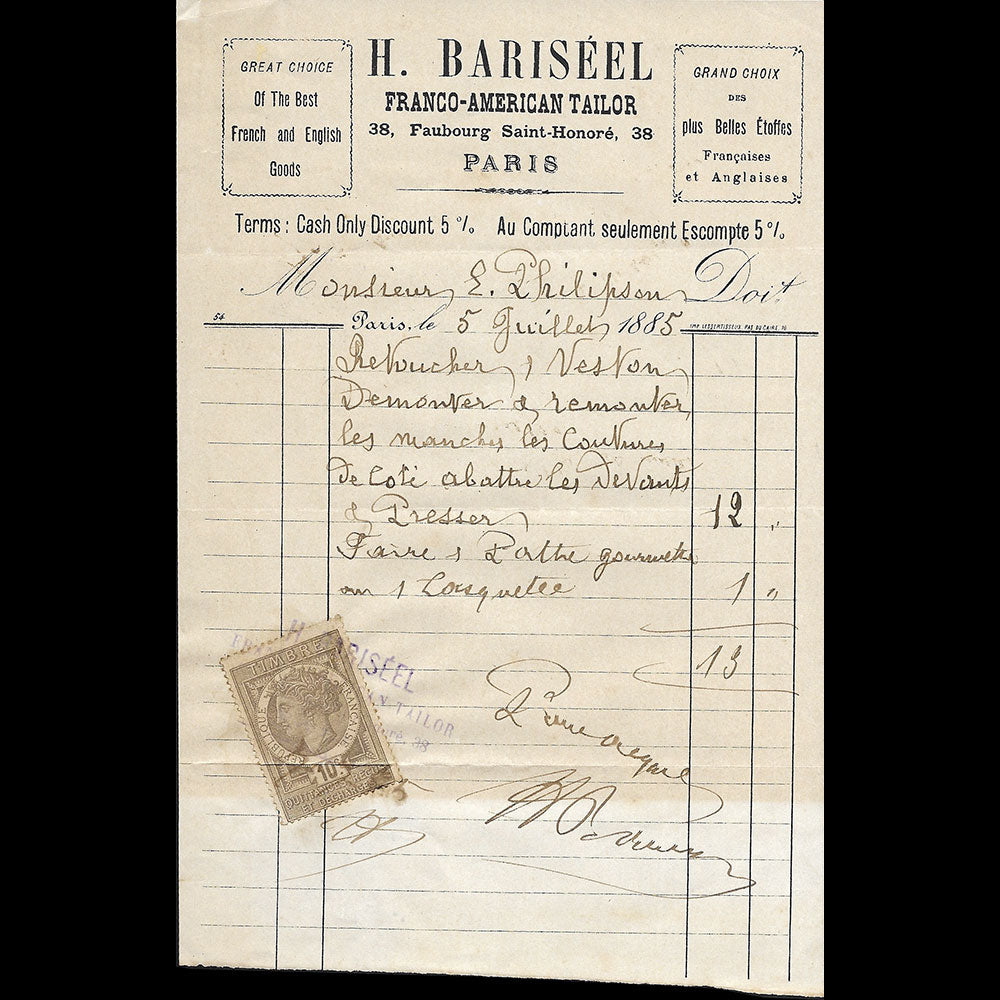 GREAT CHOICE
Of The Best
French and English
Goods
H. BARISÉEL
FRANCO-AMERICAN TAILOR
38, Faubourg Saint-Honoré, 38
PARIS
GRAND CHOIX
DES
plus Belles Étoffes
Françaises
et Anglaises
Terms : Cash Only Discount 5 % Au Comptant seulement Escompte 5 %
Monsieur E. Philipson Doit
54 Paris, le 5 Juillet 1885 IMP. LESSERTISSEUX, PAS. DU CAIRE,
Retoucher 1 Veston
Démonter & remonter
les manches les Coutures
de Coté abattre les devants
& Presser 12 "
Faire 1 Patte gourmette
1 Casquette 1 "
13
H. BARISÉEL
TAILOR
38
TIMBRE
RÉPUBLIQUE FRANÇAISE
10c
QUITTANCES REÇUS
ET DÉCHARGES
Pour acquit